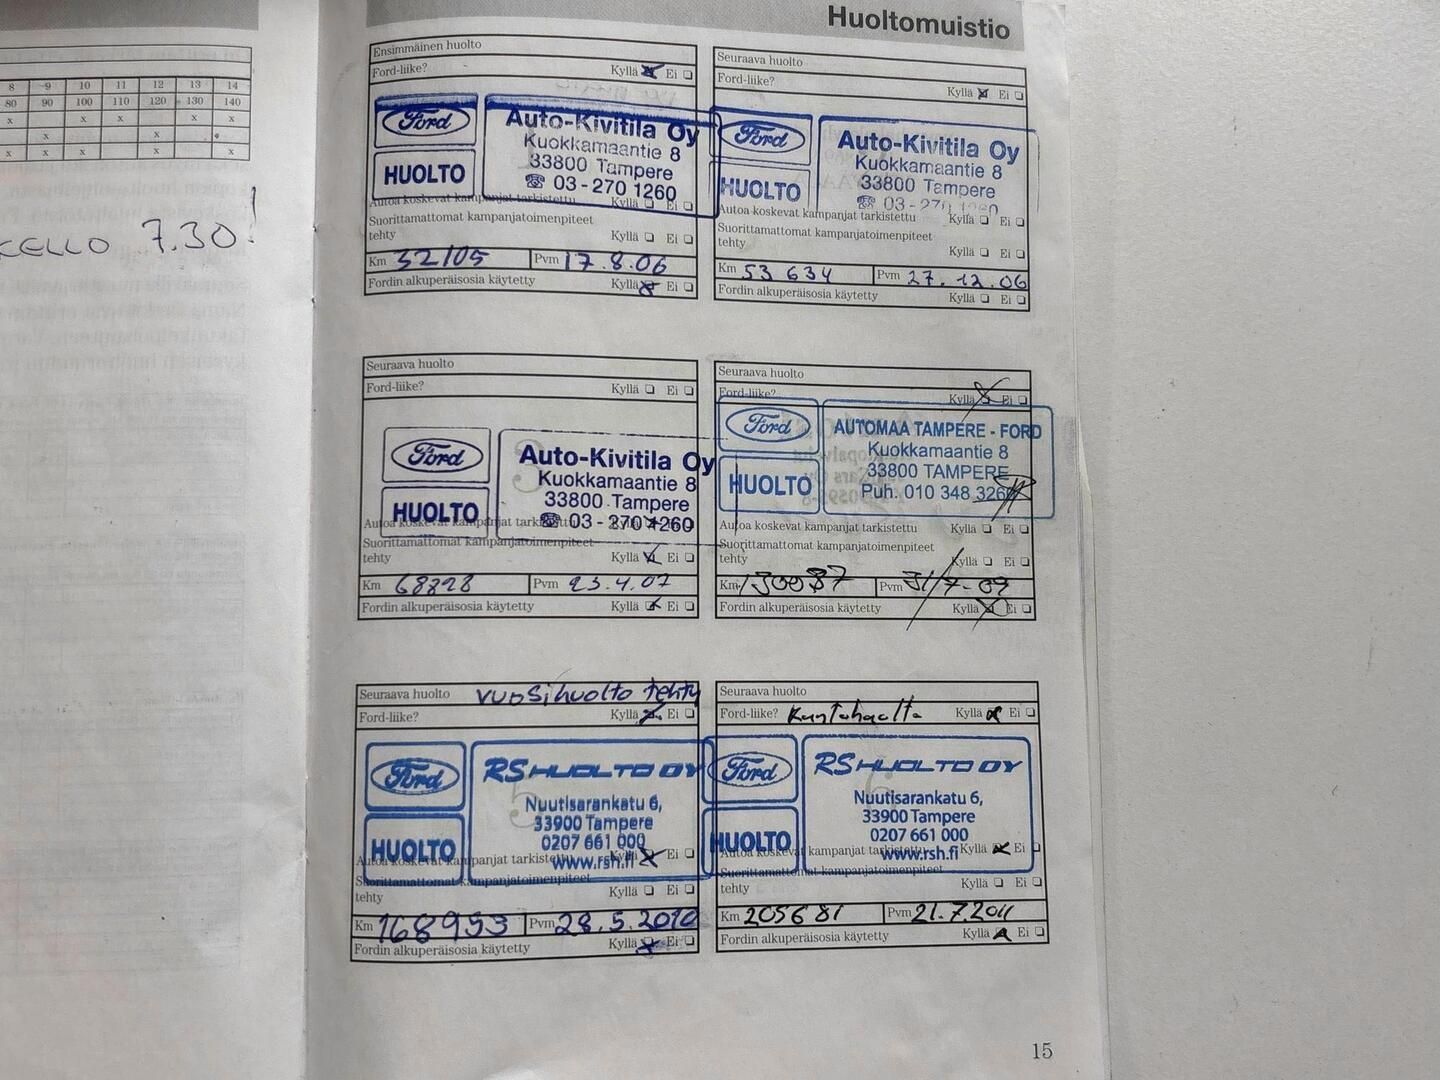 Huoltomuistio
8 9 10 11 12 13 14
80 90 100 110 120 130 140
x x x x x
x x
x x x x x
KELLO 7.30!
Ensimmäinen huolto
Ford-liike? Kyllä Ei
Ford
HUOLTO
Auto-Kivitila Oy
Kuokkamaantie 8
33800 Tampere
☎ 03 - 270 1260
Autoa koskevat kampanjat tarkistettu Kyllä Ei
Suorittamattomat kampanjatoimenpiteet
tehty Kyllä Ei
Km 32105 Pvm 17.8.06
Fordin alkuperäisosia käytetty Kyllä Ei
Seuraava huolto
Ford-liike? Kyllä Ei
Ford
HUOLTO
Auto-Kivitila Oy
Kuokkamaantie 8
33800 Tampere
☎ 03 - 270 1260
Autoa koskevat kampanjat tarkistettu Kyllä Ei
Suorittamattomat kampanjatoimenpiteet
tehty Kyllä Ei
Km 53 634 Pvm 27.12.06
Fordin alkuperäisosia käytetty Kyllä Ei
Seuraava huolto
Ford-liike? Kyllä Ei
Ford
HUOLTO
Auto-Kivitila Oy
Kuokkamaantie 8
33800 Tampere
☎ 03 - 270 1260
Autoa koskevat kampanjat tarkistettu Kyllä Ei
Suorittamattomat kampanjatoimenpiteet
tehty Kyllä Ei
Km 68828 Pvm 23.4.07
Fordin alkuperäisosia käytetty Kyllä Ei
Seuraava huolto
Ford-liike? Kyllä Ei
Ford
HUOLTO
AUTOMAA TAMPERE - FORD
Kuokkamaantie 8
33800 TAMPERE
Puh. 010 348 3260
Autoa koskevat kampanjat tarkistettu Kyllä Ei
Suorittamattomat kampanjatoimenpiteet
tehty Kyllä Ei
Km 130087 Pvm 31/7-09
Fordin alkuperäisosia käytetty Kyllä Ei
Seuraava huolto vuosihuolto tehty
Ford-liike? Kyllä Ei
Ford
HUOLTO
RS HUOLTO OY
Nuutisarankatu 6,
33900 Tampere
0207 661 000
www.rsh.fi
Autoa koskevat kampanjat tarkistettu Kyllä Ei
Suorittamattomat kampanjatoimenpiteet
tehty Kyllä Ei
Km 168953 Pvm 28.5.2010
Fordin alkuperäisosia käytetty Kyllä Ei
Seuraava huolto
Ford-liike? Kuntohuolto Kyllä Ei
Ford
HUOLTO
RS HUOLTO OY
Nuutisarankatu 6,
33900 Tampere
0207 661 000
www.rsh.fi
Autoa koskevat kampanjat tarkistettu Kyllä Ei
Suorittamattomat kampanjatoimenpiteet
tehty Kyllä Ei
Km 205681 Pvm 21.7.2011
Fordin alkuperäisosia käytetty Kyllä Ei
15